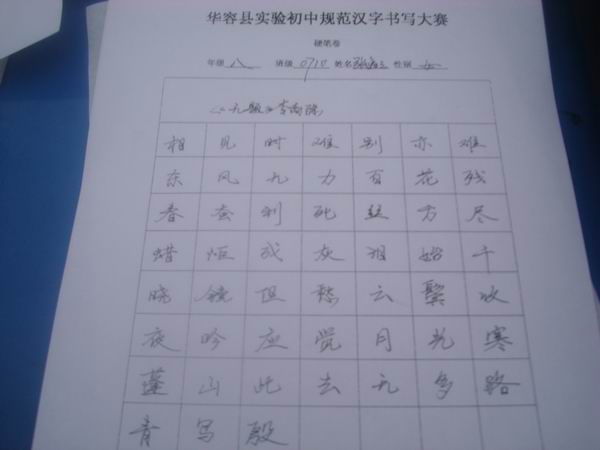 华容县实验初中规范汉字书写大赛
硬笔卷
年级 八 班级 0710 姓名 张 性别 女
《无题》李商隐
相见时难别亦难
东风无力百花残
春蚕到死丝方尽
蜡炬成灰泪始干
晓镜但愁云鬓改
夜吟应觉月光寒
蓬山此去无多路
青鸟殷